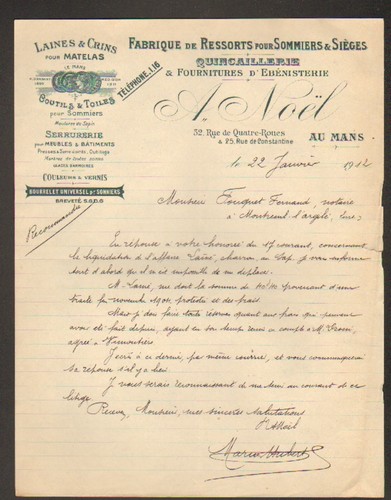 LAINES & CRINS
POUR MATELAS
LE MANS
COUTILS & TOILES
pour Sommiers
Moulures de Tapis
SERRURERIE
pour MEUBLES & BÂTIMENTS
GLACES BANNIERES
COULEURS & VERNIS
BOURRELET UNIVERSEL pr SOMMIERS
BREVETÉ S.G.D.G
TÉLÉPHONE. 1.16
FABRIQUE DE RESSORTS POUR SOMMIERS & SIÈGES
QUINCAILLERIE
& FOURNITURES D'EBÉNISTERIE
A. Noël
52, Rue de Quatre-Roues
& 25, Rue de Constantine
AU MANS
le 22 Janvier 1912
Recommandée
Monsieur Fouquet Fernand, notaire
à Montreuil l'argillé, (Eure)
En réponse à votre honorée du 17 courant, concernant
la liquidation de l'affaire charron, au Sap, je vous informe
tout d'abord qu'il en est
A. me doit la somme de provenant d'une
traite fin novembre protestée et des frais
Mais je dois faire toute réserve quant aux frais qui peuvent
avoir été fait depuis, ayant en son temps remis ce compte à M.
agréé à Vimoutiers
J'écris à ce dernier, par même courrier, et vous communiquerai
sa réponse s'il y a lieu.
Je vous serais reconnaissant de me tenir au courant de ce
litige
Recevez, Monsieur, mes sincères salutations
A Noël